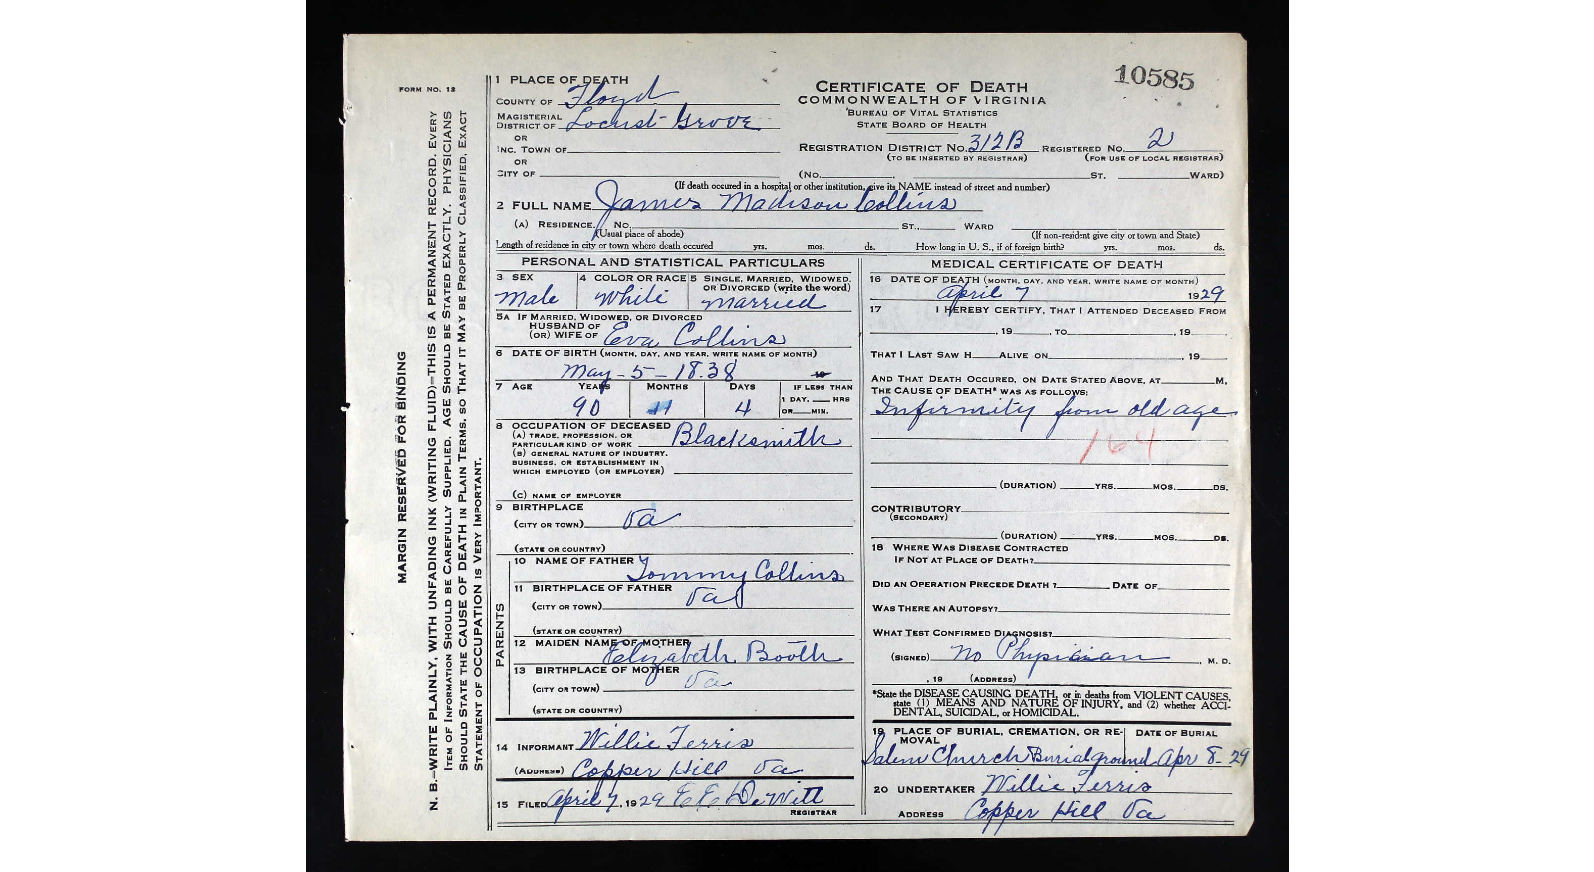 10585
FORM NO. 12
MARGIN RESERVED FOR BINDING
N. B.—WRITE PLAINLY, WITH UNFADING INK (WRITING FLUID)—THIS IS A PERMANENT RECORD. EVERY
ITEM OF INFORMATION SHOULD BE CAREFULLY SUPPLIED. AGE SHOULD BE STATED EXACTLY. PHYSICIANS
SHOULD STATE THE CAUSE OF DEATH IN PLAIN TERMS, SO THAT IT MAY BE PROPERLY CLASSIFIED. EXACT
STATEMENT OF OCCUPATION IS VERY IMPORTANT.
1 PLACE OF DEATH
COUNTY OF Floyd
MAGISTERIAL DISTRICT OF Locust Grove
OR
INC. TOWN OF
OR
CITY OF
CERTIFICATE OF DEATH
COMMONWEALTH OF VIRGINIA
BUREAU OF VITAL STATISTICS
STATE BOARD OF HEALTH
REGISTRATION DISTRICT No. 312B REGISTERED No. 2
(TO BE INSERTED BY REGISTRAR) (FOR USE OF LOCAL REGISTRAR)
(No. ST. WARD)
(If death occured in a hospital or other institution, give its NAME instead of street and number)
2 FULL NAME James Madison Collins
(A) RESIDENCE. No. ST., WARD
(Usual place of abode) (If non-resident give city or town and State)
Length of residence in city or town where death occured yrs. mos. ds. How long in U. S., if of foreign birth? yrs. mos. ds.
PERSONAL AND STATISTICAL PARTICULARS
3 SEX 4 COLOR OR RACE 5 SINGLE, MARRIED, WIDOWED, OR DIVORCED (write the word)
Male White Married
5A IF MARRIED, WIDOWED, OR DIVORCED
HUSBAND OF
(OR) WIFE OF Eva Collins
6 DATE OF BIRTH (MONTH, DAY, AND YEAR, WRITE NAME OF MONTH)
May - 5 - 1838
7 AGE YEARS MONTHS DAYS IF LESS THAN
1 DAY, HRS
OR MIN.
90 11 4
8 OCCUPATION OF DECEASED
(A) TRADE, PROFESSION, OR
PARTICULAR KIND OF WORK Blacksmith
(B) GENERAL NATURE OF INDUSTRY,
BUSINESS, OR ESTABLISHMENT IN
WHICH EMPLOYED (OR EMPLOYER)
(C) NAME OF EMPLOYER
9 BIRTHPLACE
(CITY OR TOWN) Va
(STATE OR COUNTRY)
PARENTS
10 NAME OF FATHER Tommy Collins
11 BIRTHPLACE OF FATHER
(CITY OR TOWN) Va
(STATE OR COUNTRY)
12 MAIDEN NAME OF MOTHER
Elizabeth Booth
13 BIRTHPLACE OF MOTHER
(CITY OR TOWN) Va
(STATE OR COUNTRY)
14 INFORMANT Willie Ferris
(ADDRESS) Copper Hill Va
15 FILED April 7, 1929 E E DeWitt
REGISTRAR
MEDICAL CERTIFICATE OF DEATH
16 DATE OF DEATH (MONTH, DAY, AND YEAR, WRITE NAME OF MONTH)
April 7 1929
17 I HEREBY CERTIFY, THAT I ATTENDED DECEASED FROM
, 19 , TO , 19
THAT I LAST SAW H ALIVE ON , 19
AND THAT DEATH OCCURED, ON DATE STATED ABOVE, AT M.
THE CAUSE OF DEATH* WAS AS FOLLOWS:
Infirmity from old age
164
(DURATION) YRS. MOS. DS.
CONTRIBUTORY
(SECONDARY)
(DURATION) YRS. MOS. DS.
18 WHERE WAS DISEASE CONTRACTED
IF NOT AT PLACE OF DEATH?
DID AN OPERATION PRECEDE DEATH? DATE OF
WAS THERE AN AUTOPSY?
WHAT TEST CONFIRMED DIAGNOSIS?
(SIGNED) No Physician , M. D.
, 19 (ADDRESS)
*State the DISEASE CAUSING DEATH, or in deaths from VIOLENT CAUSES,
state (1) MEANS AND NATURE OF INJURY, and (2) whether ACCI-
DENTAL, SUICIDAL, or HOMICIDAL.
19 PLACE OF BURIAL, CREMATION, OR RE-MOVAL DATE OF BURIAL
Salem Church Burial ground Apr 8-29
20 UNDERTAKER Willie Ferris
ADDRESS Copper Hill Va